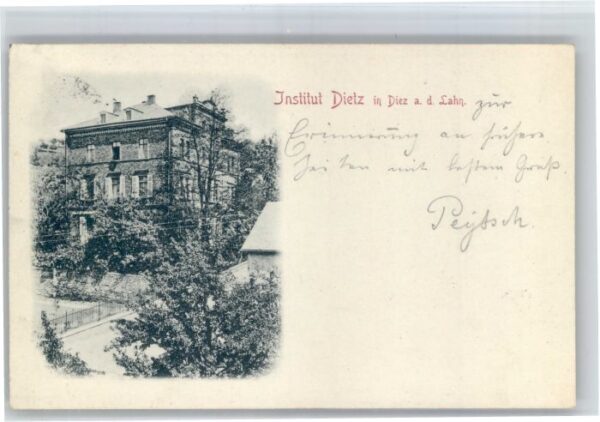 Institut Dietz in Diez a. d. Lahn. zur
Erinnerung an frühere
Zeiten mit bestem Gruß.
Peytsch.